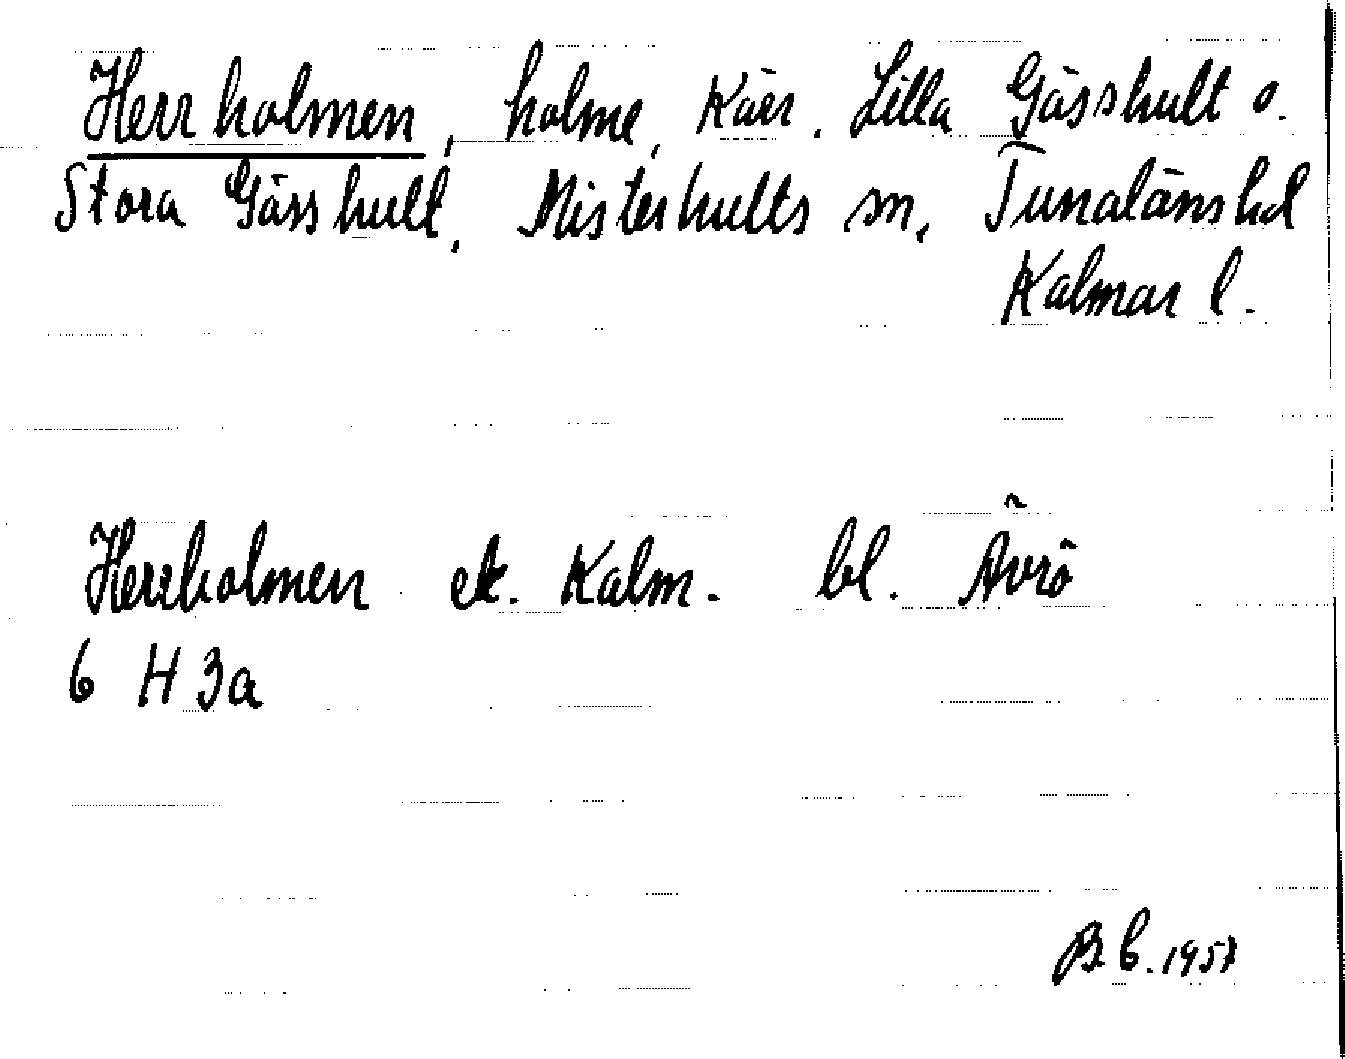 Herrholmen, holme, Kärr. Lilla Gässhult o.
Stora Gässhult, Misterhults sn, Tunaläns hd
Kalmar l.
Herrholmen ek. Kalm. bl. Ävrö
6 H 3a
B.C. 1957